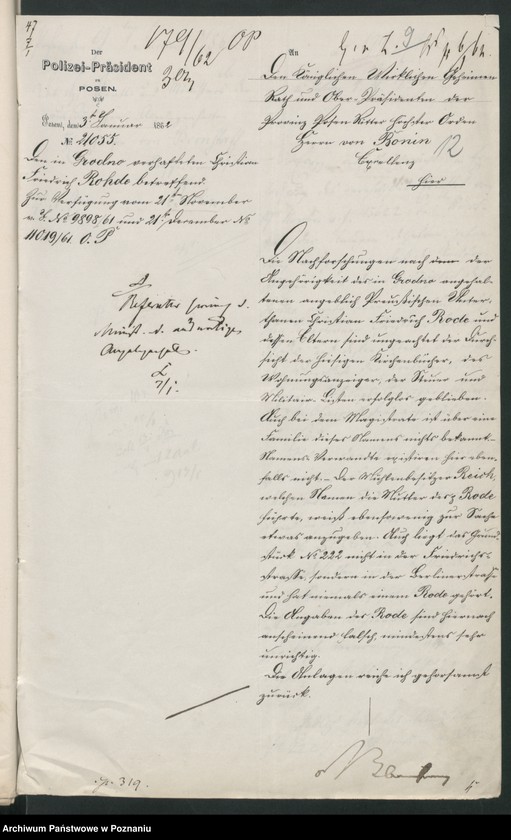 47
179/62 OP
Der
Polizei-Präsident
zu
POSEN.
Posen, den 3ten Januar 1862
№ 21055.
Den in Grodno verhafteten Christian
Friedrich Rohde betreffend.
Zur Verfügung vom 21ten November
v. J. No 9898/61 und 21ten December No
11019/61. O. P.
An
Den Königlichen Wirklichen Geheimen
Rath und Ober-Präsidenten der
Provinz Posen Ritter höchster Orden
Herrn von Bonin
Excellenz
hier
12
Die Nachforschungen nach dem der
Angehörigkeit des in Grodno angehal-
tenen angeblich Preußischen Unter-
thanen Christian Friedrich Rode und
dessen Eltern sind ungeachtet der Durch-
sicht der hiesigen Kirchenbücher, des
Wohnungsanzeiger, der Steuer und
Militair-Listen erfolglos geblieben.
Auch bei dem Magistrate ist über eine
Familie dieses Namens nichts bekannt.
Namens-Verwandte existiren hier eben-
falls nicht. - Der Mühlenbesitzer Reich,
welchen Namen die Mutter des Rode
führte, weiß ebensowenig zur Sache
etwas anzugeben. Auch liegt das Grund-
stück No 222 nicht in der Friedrichs-
straße, sondern in der Berlinerstraße
und hat niemals einem Rode gehört.
Die Angaben des Rode sind hiernach
anscheinend falsch, mindestens sehr
unrichtig.
Die Anlagen reiche ich gehorsamst
zurück.
319.
Archiwum Państwowe w Poznaniu